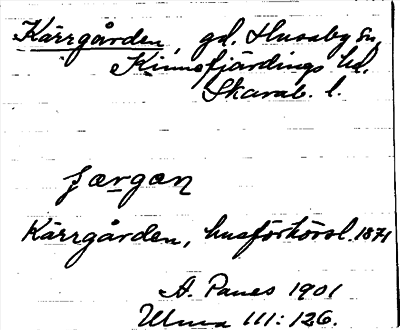 Kärrgården, gd. Husaby sn,
Kinnefjärdings hd.
Skarab. l.
Kärrgården, husförhörsl. 1871
A. Panes 1901
Ulma 111: 126.